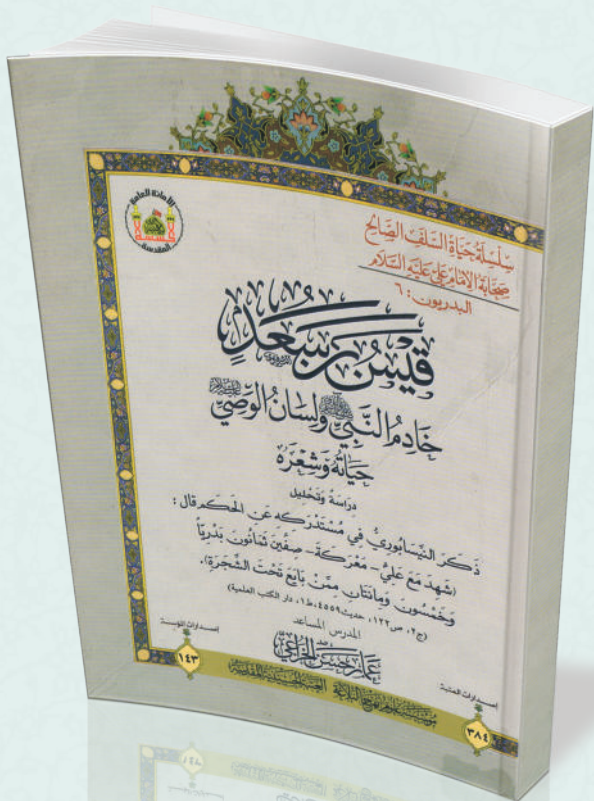 سِلْسِلَةُ حَيَاةِ السَّلَفِ الصَّالِحِ
صَحَابَةُ الإِمَامِ عَلِيٍّ عَلَيْهِ السَّلَامُ
البدريون: ٦
قَيْسُ بْنُ سَعْدٍ
خَادِمُ النَّبِيِّ وَلِسَانُ الْوَصِيِّ
حَيَاتُهُ وَشِعْرُهُ
دِرَاسَةٌ وَتَحْلِيل
ذَكَرَ النَّيسَابُورِيُّ فِي مُسْتَدْرَكِهِ عَنِ الْحَكَمِ قَالَ:
(شَهِدَ مَعَ عَلِيٍّ - مَعْرَكَةَ - صِفِّينَ ثَمَانُونَ بَدْرِيًّا
وَخَمْسُونَ وَمِائَتَانِ مِمَّنْ بَايَعَ تَحْتَ الشَّجَرَةِ).
(ج٢، ص١٢٢، حديث٤٥٥٩، ط١، دار الكتب العلمية)
المدرس المساعد
عمار حسن الخزاعي
إصدارات المؤسسة
١٤٣
مؤسسة علوم نهج البلاغة العتبة الحسينية المقدسة
إصدارات العتبة
٣٨٤